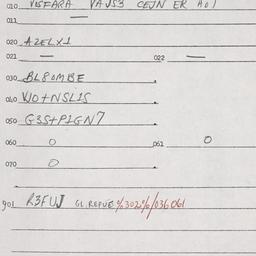 010 VOSFARA VAJS3 CEJN ER A01
011 —
020 AZELX1
021 — 022 —
030 BL80MBE
040 WO+NSL1S
050 G3S+P1GN7
060 0 061 0
070 0
901 R3FUJ GL.REFUE %302%/036061